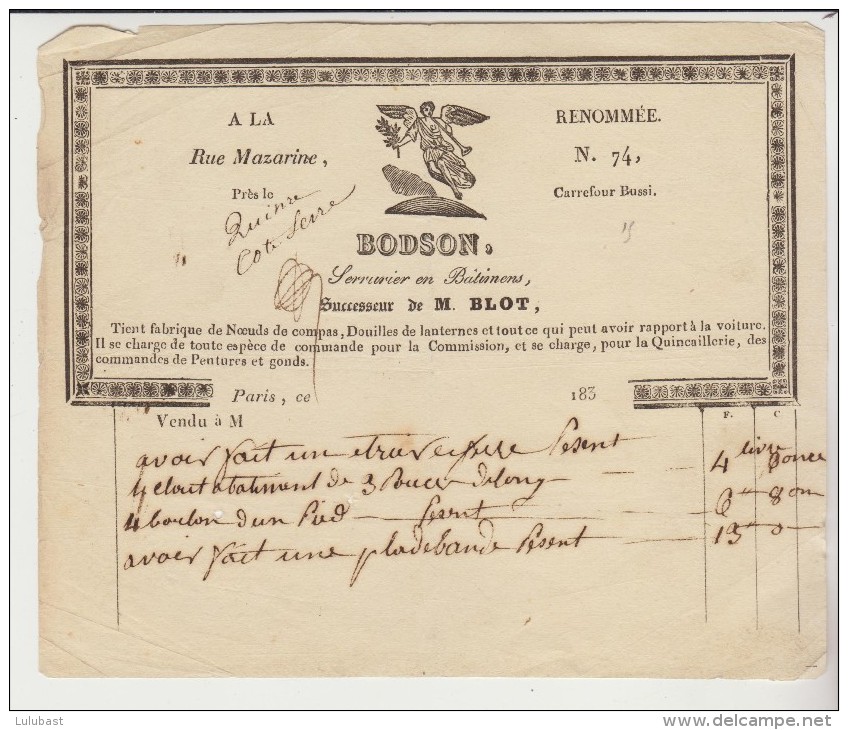 A LA RENOMMÉE.
Rue Mazarine, N. 74,
Près le Carrefour Bussi.
Quinze
Cote Serre
15
BODSON,
Serrurier en Bâtimens,
Successeur de M. BLOT,
Tient fabrique de Nœuds de compas, Douilles de lanternes et tout ce qui peut avoir rapport à la voiture.
Il se charge de toute espèce de commande pour la Commission, et se charge, pour la Quincaillerie, des
commandes de Pentures et gonds.
Paris, ce 183
Vendu à M F. C
avoir fait un Pesent 4 livre once
4 clout a batiment de 3 Pouce de long
4 boulon dun Pied Pesent 6 8 on
avoir fait une pladebande Pesent 13 0
Lulubast
www.delcampe.net